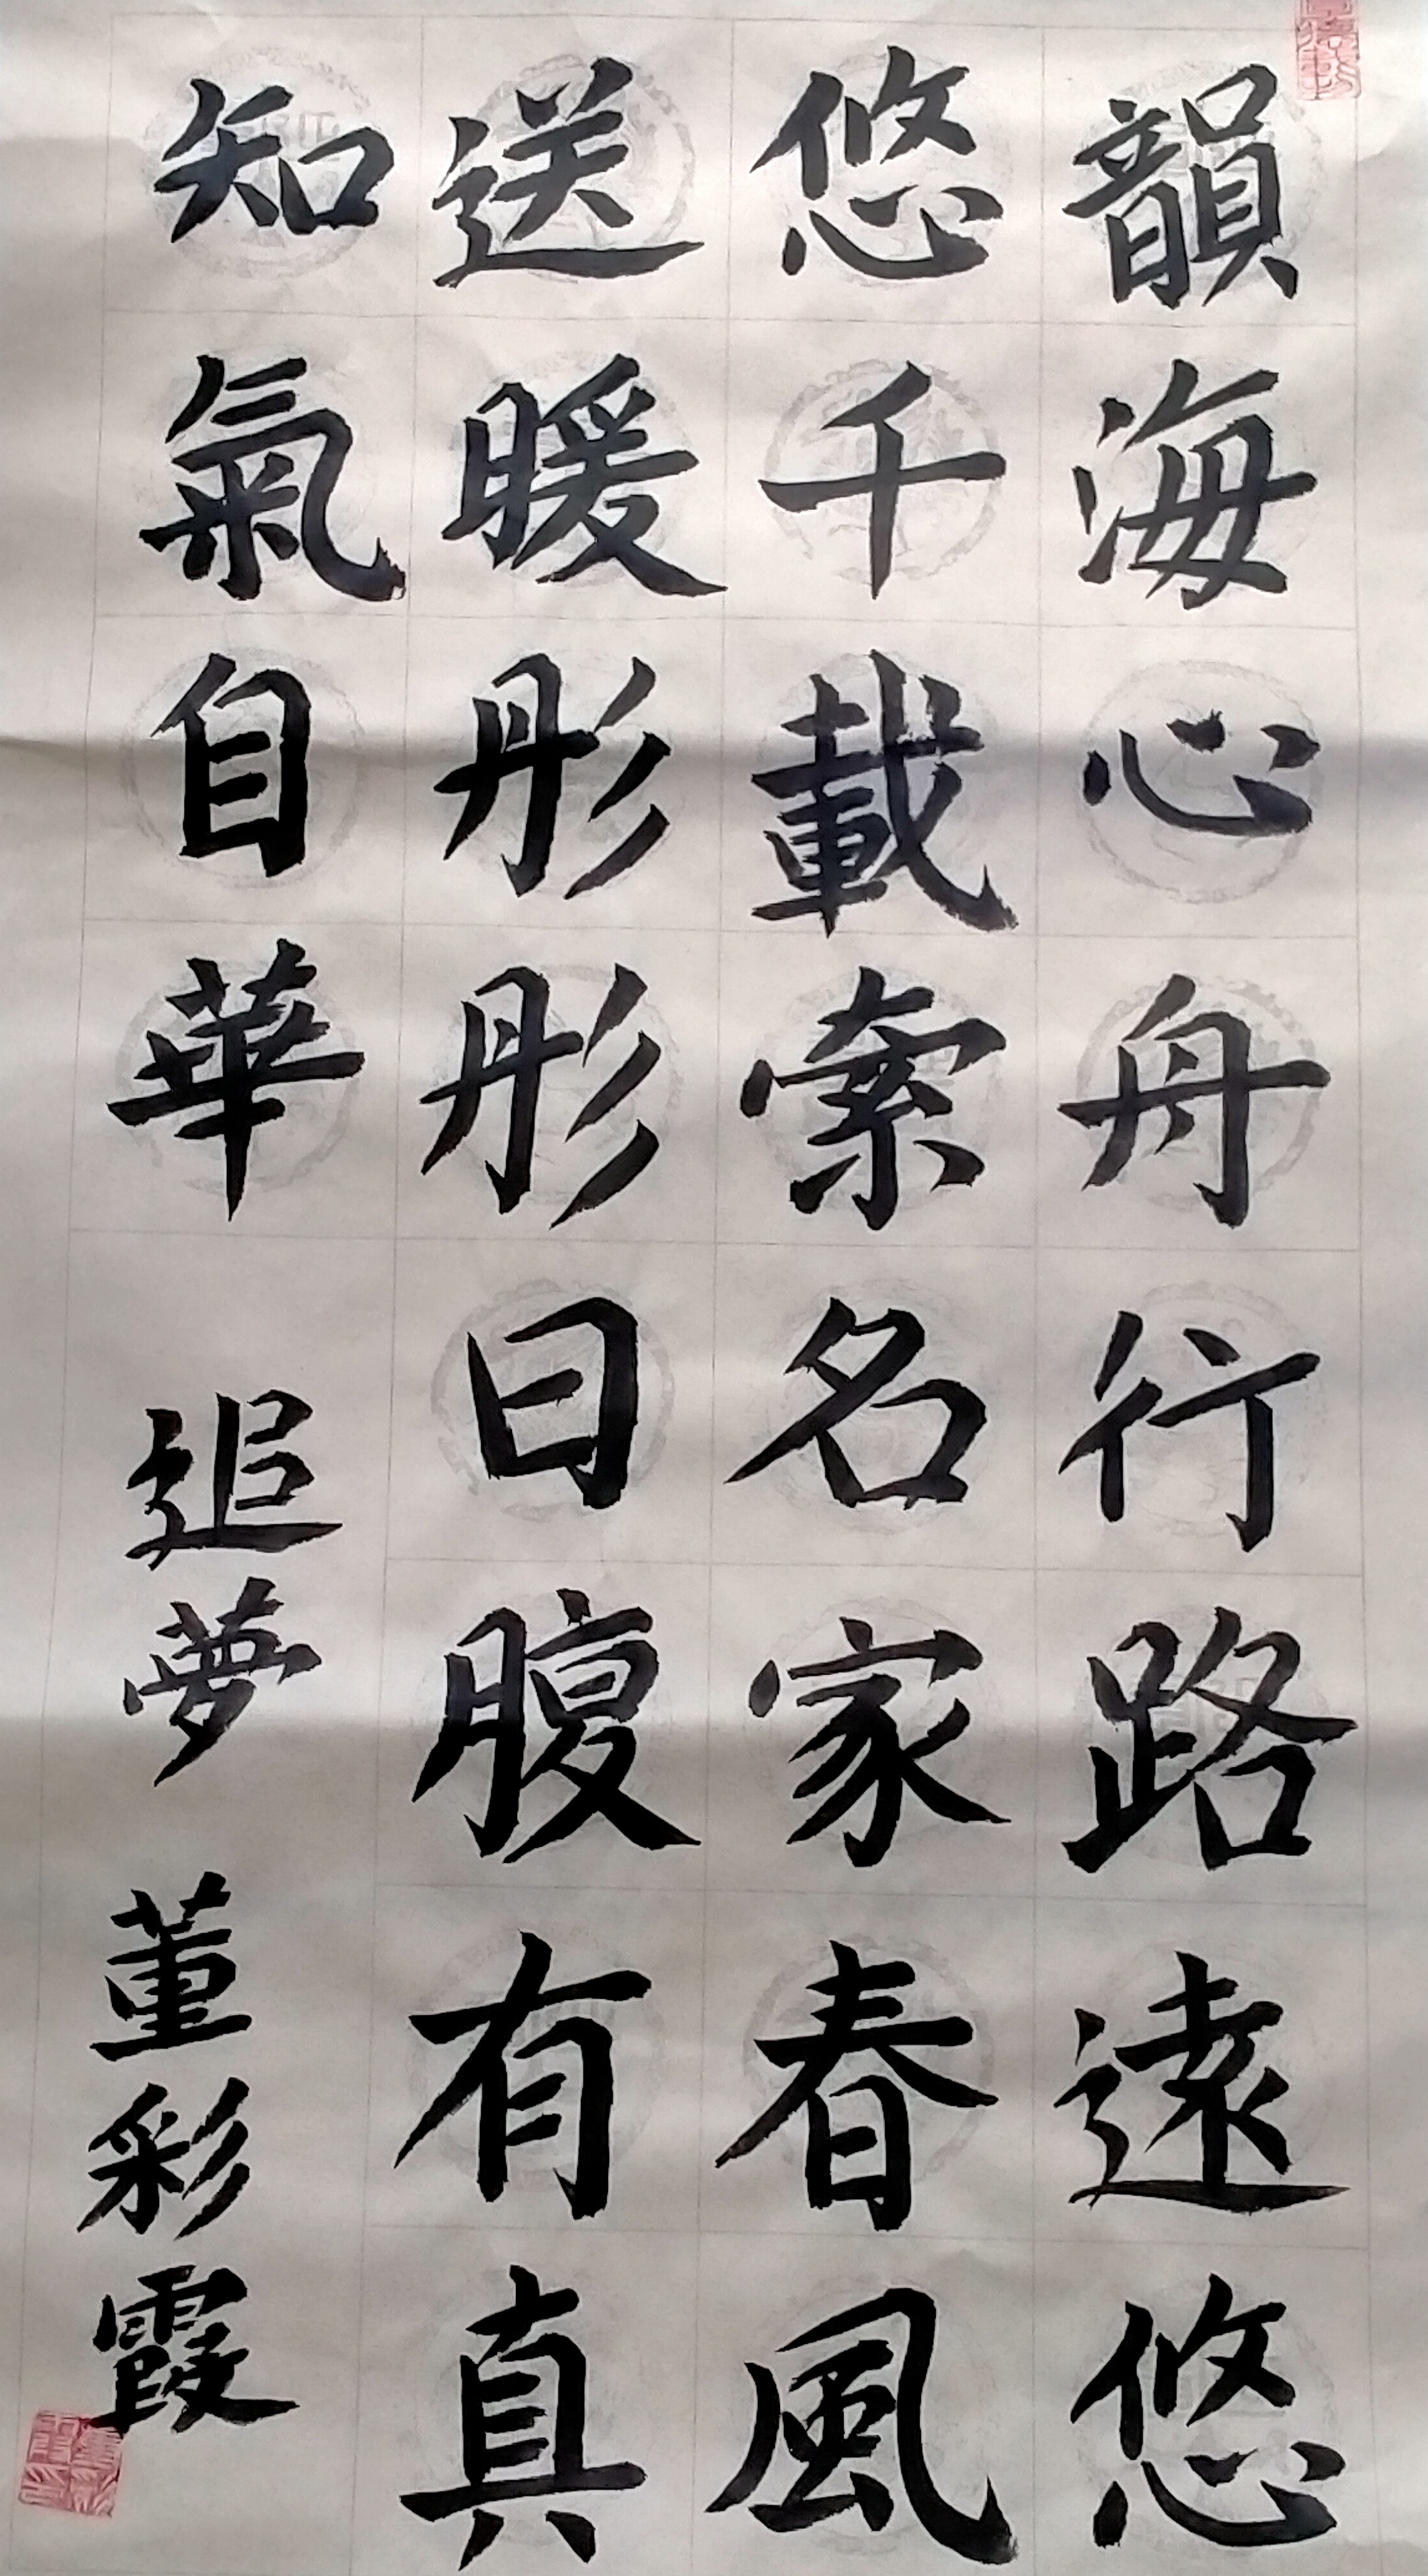 韻海心舟行路遠悠
悠千載索名家春風
送暖彤彤日腹有真
知氣自華
追夢
董彩霞